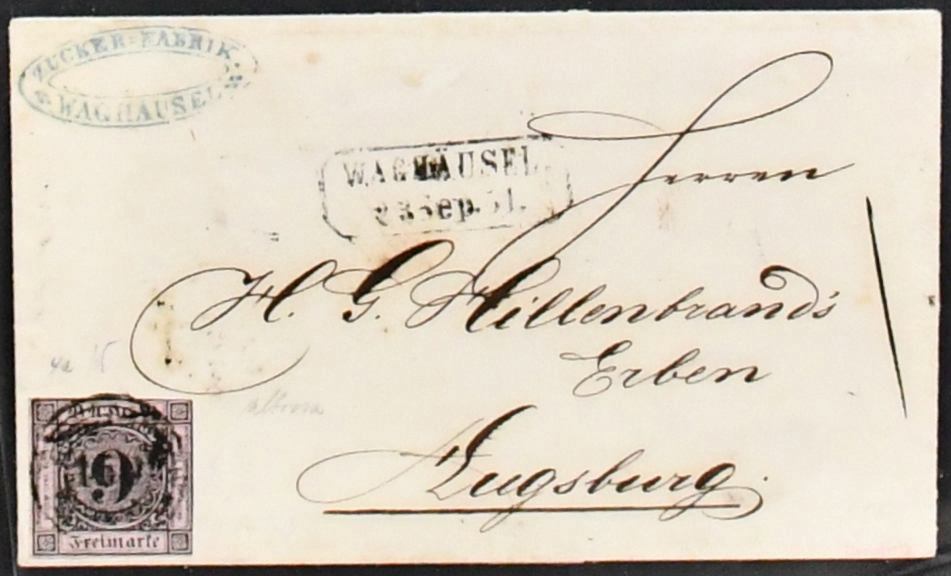 ZUCKER-FABRIK
WAGHAUSEL
WAGHÄUSEL.
23 Sep. 51.
Herren
H. G. Hillenbrand's
Erben
Augsburg.
9
Freimarke